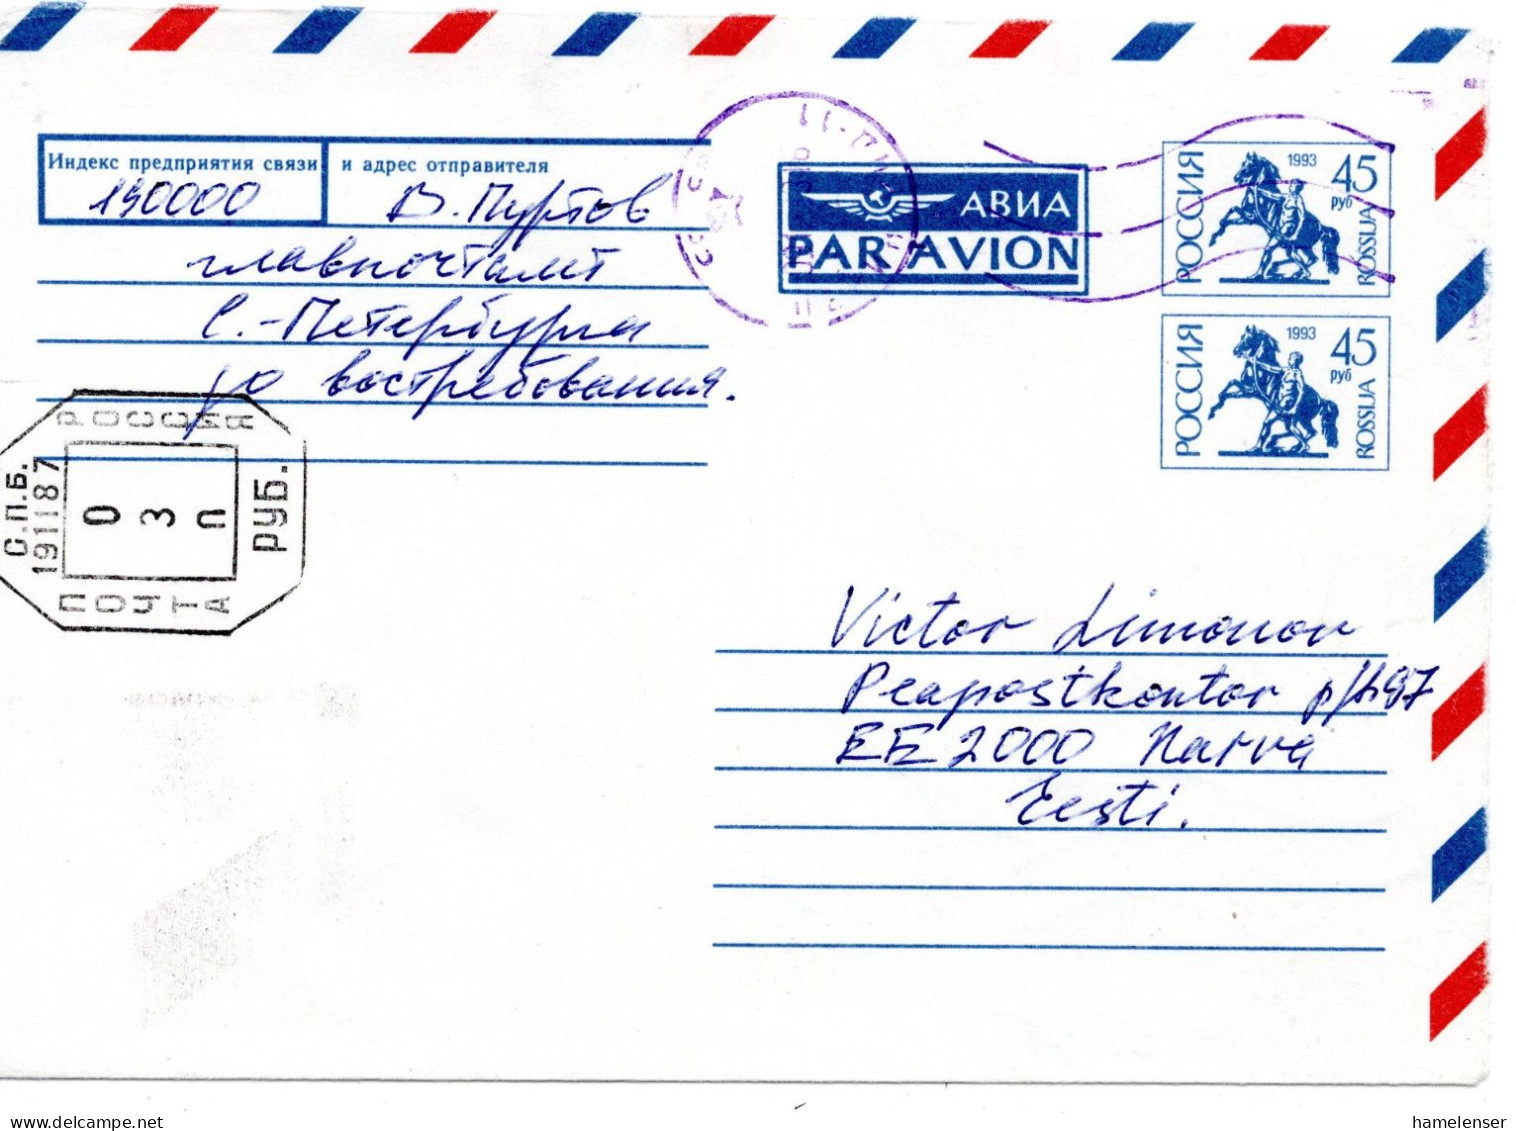 Индекс предприятия связи
190000
и адрес отправителя
В. Пуртов
главпочтамт
С.-Петербурга
до востребования.
РОССИЯ
С.П.Б.
191187
РУБ.
ПОЧТА
АВИА
PAR AVION
РОССИЯ
1993
45
руб
ROSSIJA
РОССИЯ
1993
45
руб
ROSSIJA
Victor Limonov
Peapostkontor p/k 97
EE2000 Narva
Eesti.
hamelenser